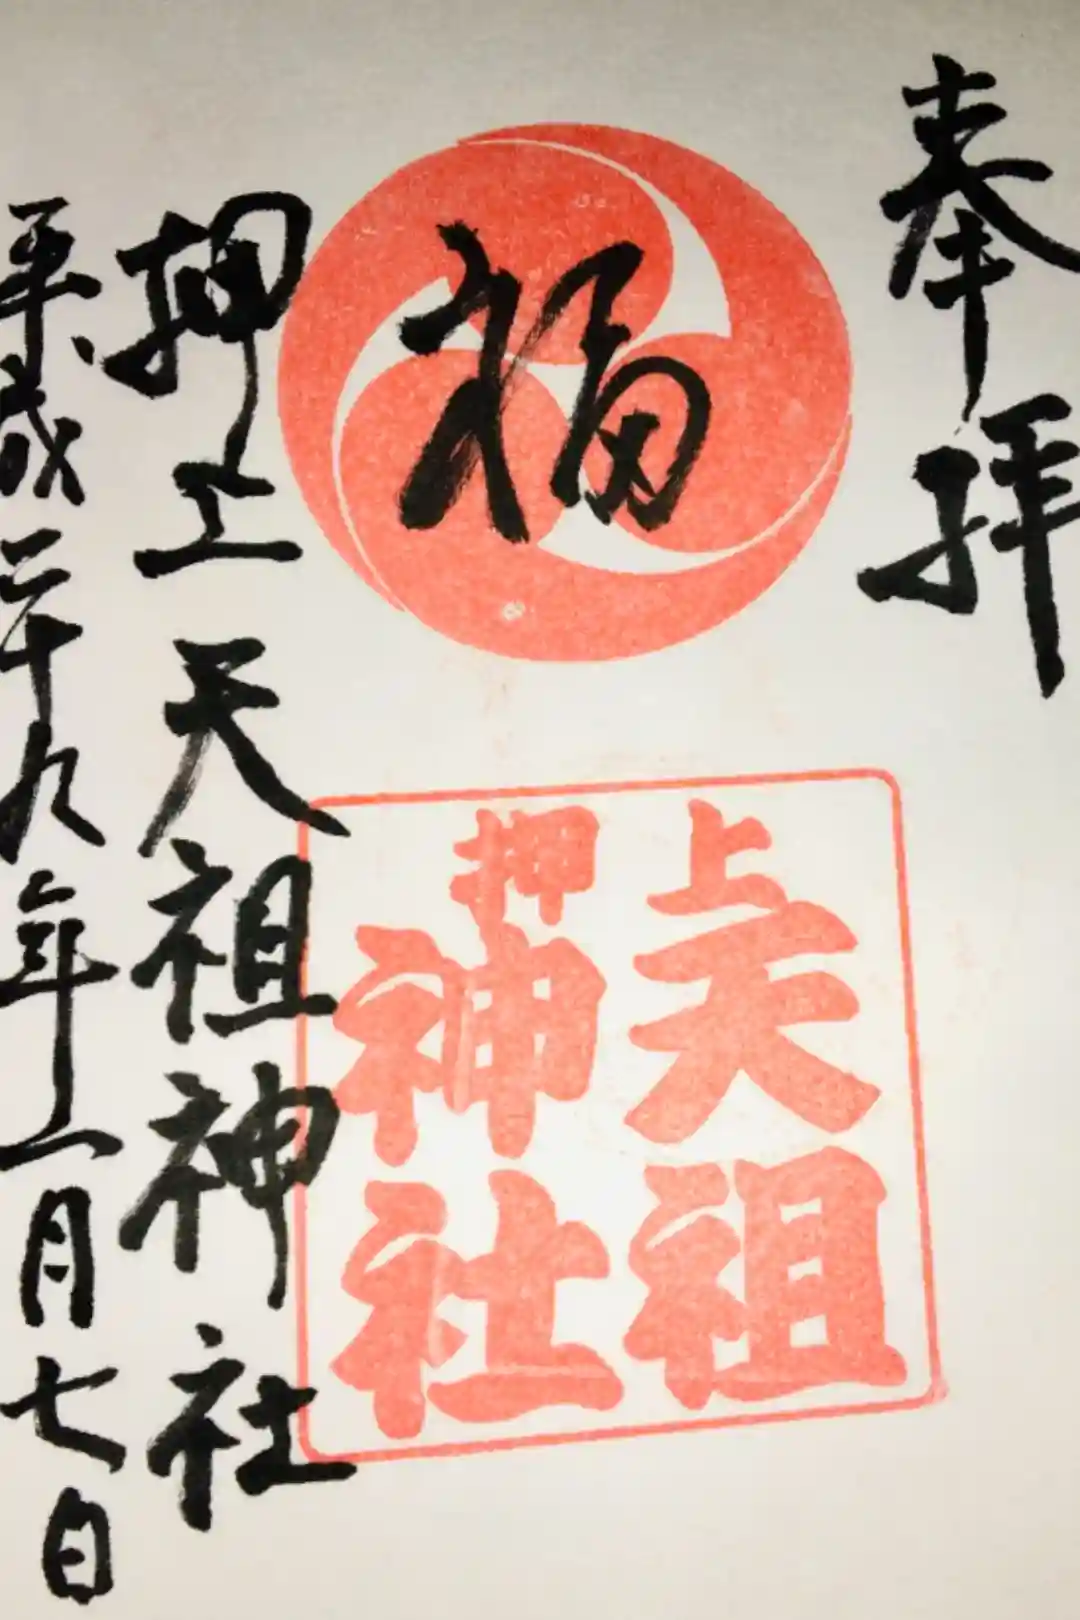 奉拝
福
押上天祖神社
押上
天祖
神社
平成二十九年一月七日